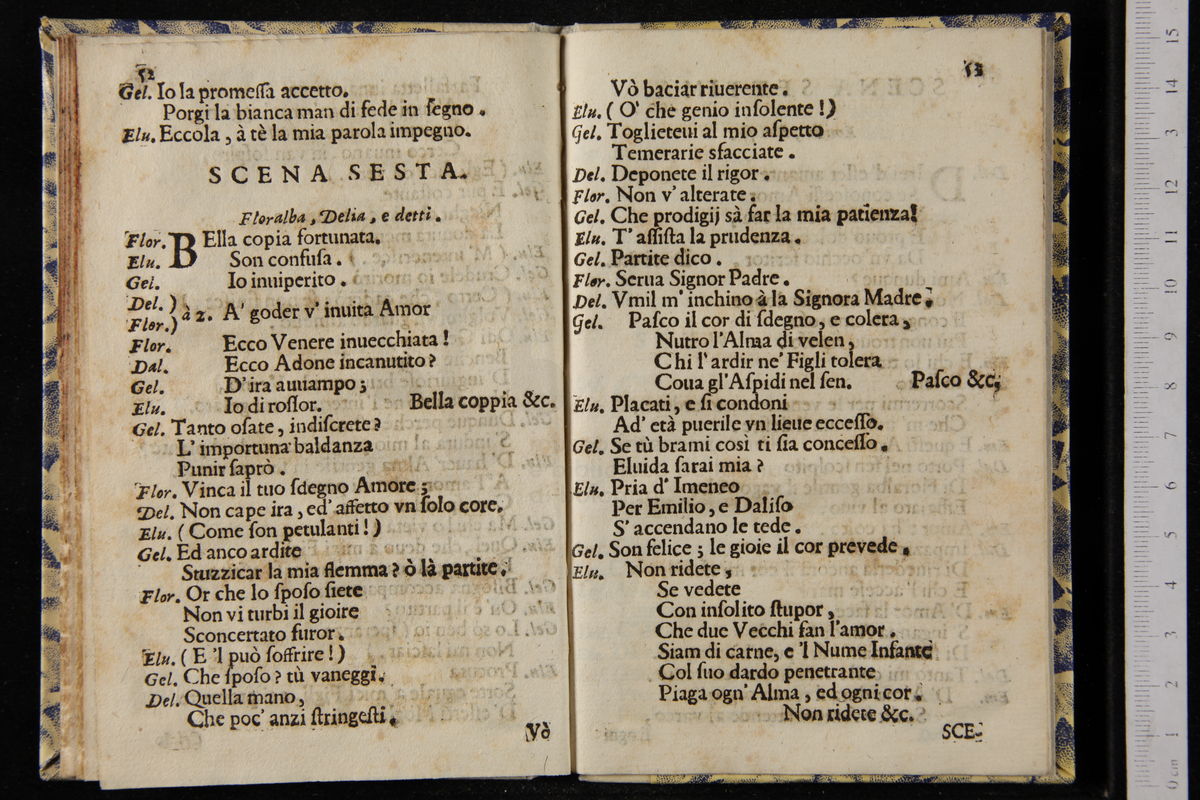 52
Gel. Io la promeſſa accetto.
Porgi la bianca man di fede in ſegno.
Elu. Eccola, à tè la mia parola impegno.
SCENA SESTA.
Floralba, Delia, e detti.
Flor. BElla copia fortunata.
Elu. Son confuſa.
Gel. Io inuiperito.
Del. )
à 2. A' goder v' inuita Amor
Flor. )
Flor. Ecco Venere inuecchiata!
Dal. Ecco Adone incanutito?
Gel. D'ira auuampo;
Elu. Io di roſſor. Bella coppia &c.
Gel. Tanto oſate, indiſcrete?
L' importuna baldanza
Punir ſaprò.
Flor. Vinca il tuo ſdegno Amore;
Del. Non cape ira, ed' affetto vn ſolo core.
Elu. (Come ſon petulanti!)
Gel. Ed anco ardite
Stuzzicar la mia flemma? ò là partite.
Flor. Or che lo ſpoſo ſiete
Non vi turbi il gioire
Sconcertato furor.
Elu. (E 'l può ſoffrire!)
Gel. Che ſpoſo? tù vaneggi.
Del. Quella mano,
Che poc' anzi ſtringeſti.
Vò
53
Vò baciar riuerente.
Elu. (O' che genio inſolente!)
Gel. Toglieteui al mio aſpetto
Temerarie sfacciate.
Del. Deponete il rigor.
Flor. Non v' alterate.
Gel. Che prodigij sà far la mia patienza!
Elu. T' aſſiſta la prudenza.
Gel. Partite dico.
Flor. Serua Signor Padre.
Del. Vmil m' inchino à la Signora Madre.
Gel. Paſco il cor di ſdegno, e colera,
Nutro l'Alma di velen,
Chi l' ardir ne' Figli tolera
Coua gl'Aſpidi nel ſen. Paſco &c.
Elu. Placati, e ſi condoni
Ad' età puerile vn lieue ecceſſo.
Gel. Se tù brami così ti ſia conceſſo.
Eluida ſarai mia?
Elu. Pria d' Imeneo
Per Emilio, e Daliſo
S' accendano le tede.
Gel. Son felice; le gioie il cor prevede.
Elu. Non ridete,
Se vedete
Con inſolito ſtupor,
Che due Vecchi fan l'amor.
Siam di carne, e 'l Nume Infante
Col ſuo dardo penetrante
Piaga ogn' Alma, ed ogni cor.
Non ridete &c.
SCE-